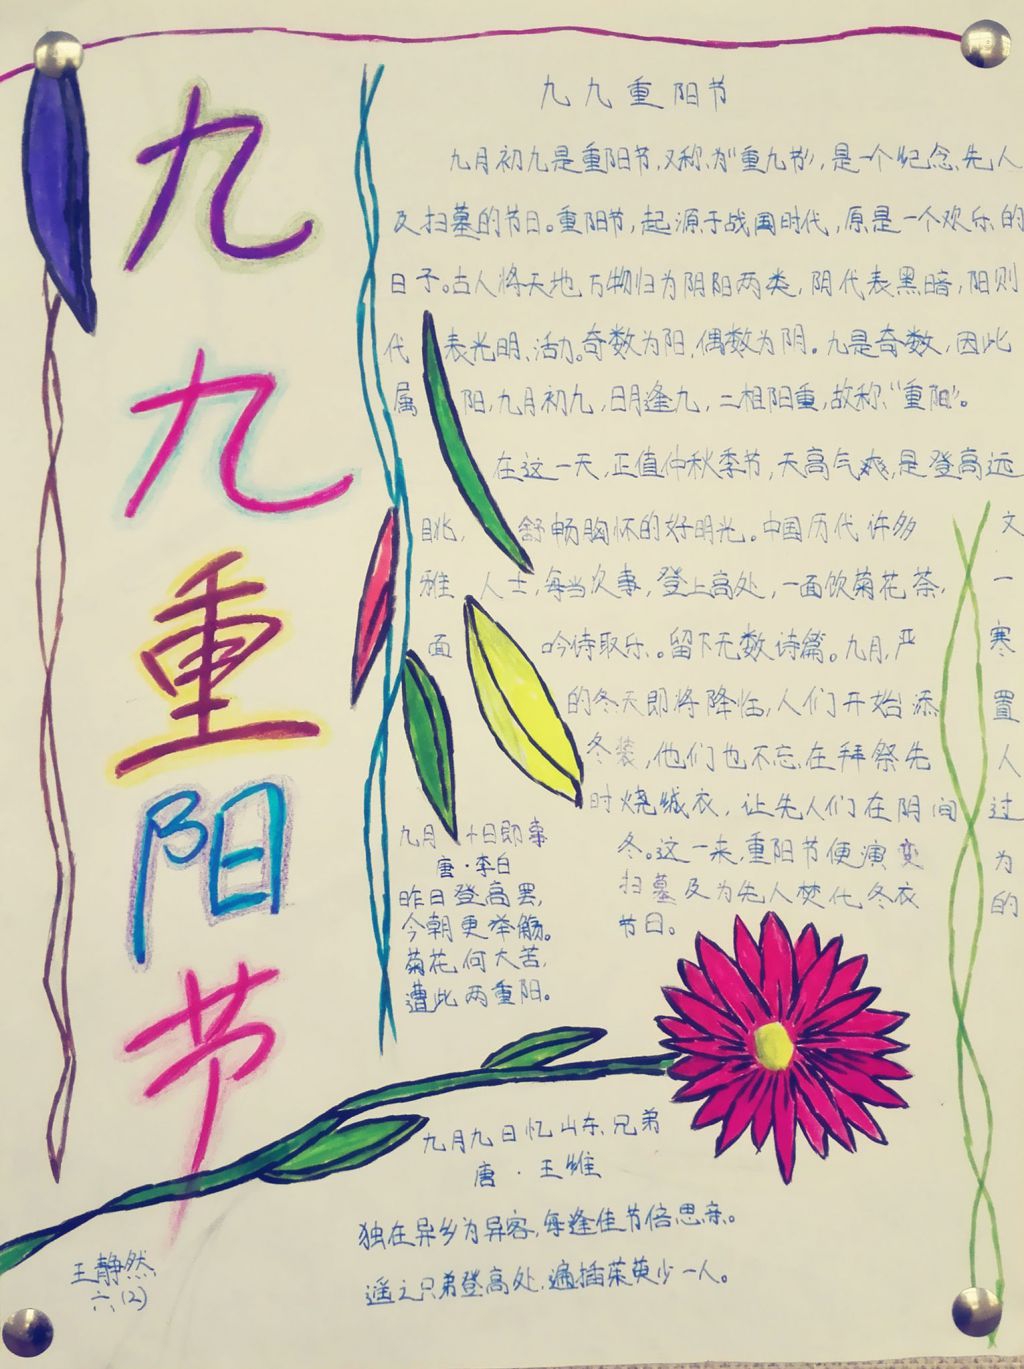 九九重阳节
九九重阳节
九月初九是重阳节,又称为“重九节”,是一个纪念先人
及扫墓的节日。重阳节,起源于战国时代,原是一个欢乐的
日子。古人将天地万物归为阴阳两类,阴代表黑暗,阳则
代表光明、活力。奇数为阳,偶数为阴。九是奇数,因此
属阳,九月初九,日月逢九,二相阳重,故称“重阳”。
在这一天,正值仲秋季节,天高气爽,是登高远
眺,舒畅胸怀的好明光。中国历代许多文
雅人士,每当次事,登上高处,一面饮菊花茶,一
面吟诗取乐。留下无数诗篇。九月,严寒
的冬天即将降临,人们开始添置
冬装,他们也不忘在拜祭先人
时烧缄衣,让先人们在阴间过
冬。这一来,重阳节便演变为
扫墓及为先人焚化冬衣的
节日。
九月十日即事
唐·李白
昨日登高罢,
今朝更举觞。
菊花何大苦,
遭此两重阳。
九月九日忆山东兄弟
唐·王维
独在异乡为异客,每逢佳节倍思亲。
遥之兄弟登高处,遍插茱萸少一人。
王静然
六(2)